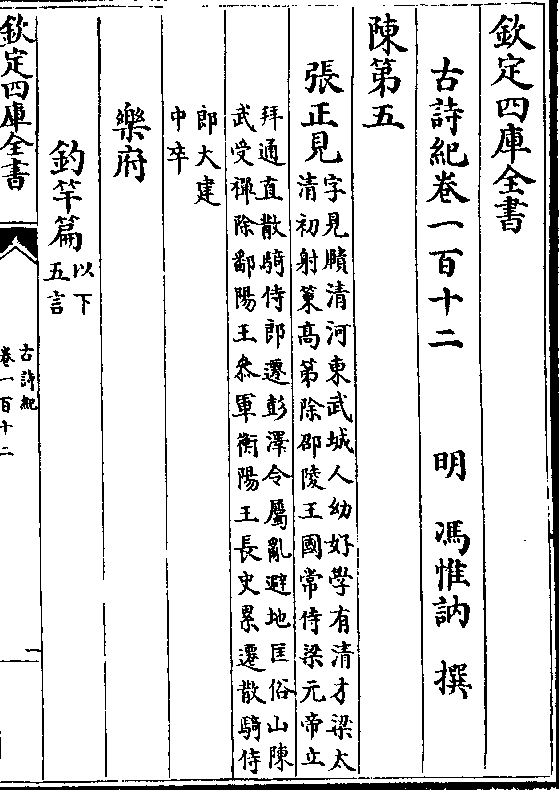 欽定四庫全書
古詩紀卷一百十二　明　馮惟訥　撰
陳第五
張正見
字見賾清河東武城人幼好學有清才梁太
清初射策高第除邵陵王國常侍梁元帝立
拜通直散騎侍郎遷彭澤令屬亂避地匡俗山陳
武受禪除鄱陽王叅軍衡陽王長史累遷散騎侍
郎大建
中卒
樂府
釣竿篇
以下
五言
欽定四庫全書
古詩紀
卷一百十二
一